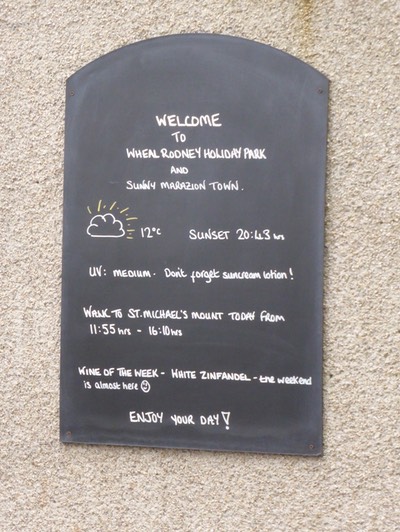 WELCOME
TO
WHEAL RODNEY HOLIDAY PARK
AND
SUNNY MARAZION TOWN.
12°C SUNSET 20:43 HRS
UV: MEDIUM. Don't forget suncream lotion!
WALK TO ST. MICHAEL'S MOUNT TODAY FROM
11:55 hrs - 16:10 hrs
WINE OF THE WEEK - WHITE ZINFANDEL - the weekend
is almost here ☺
ENJOY YOUR DAY!